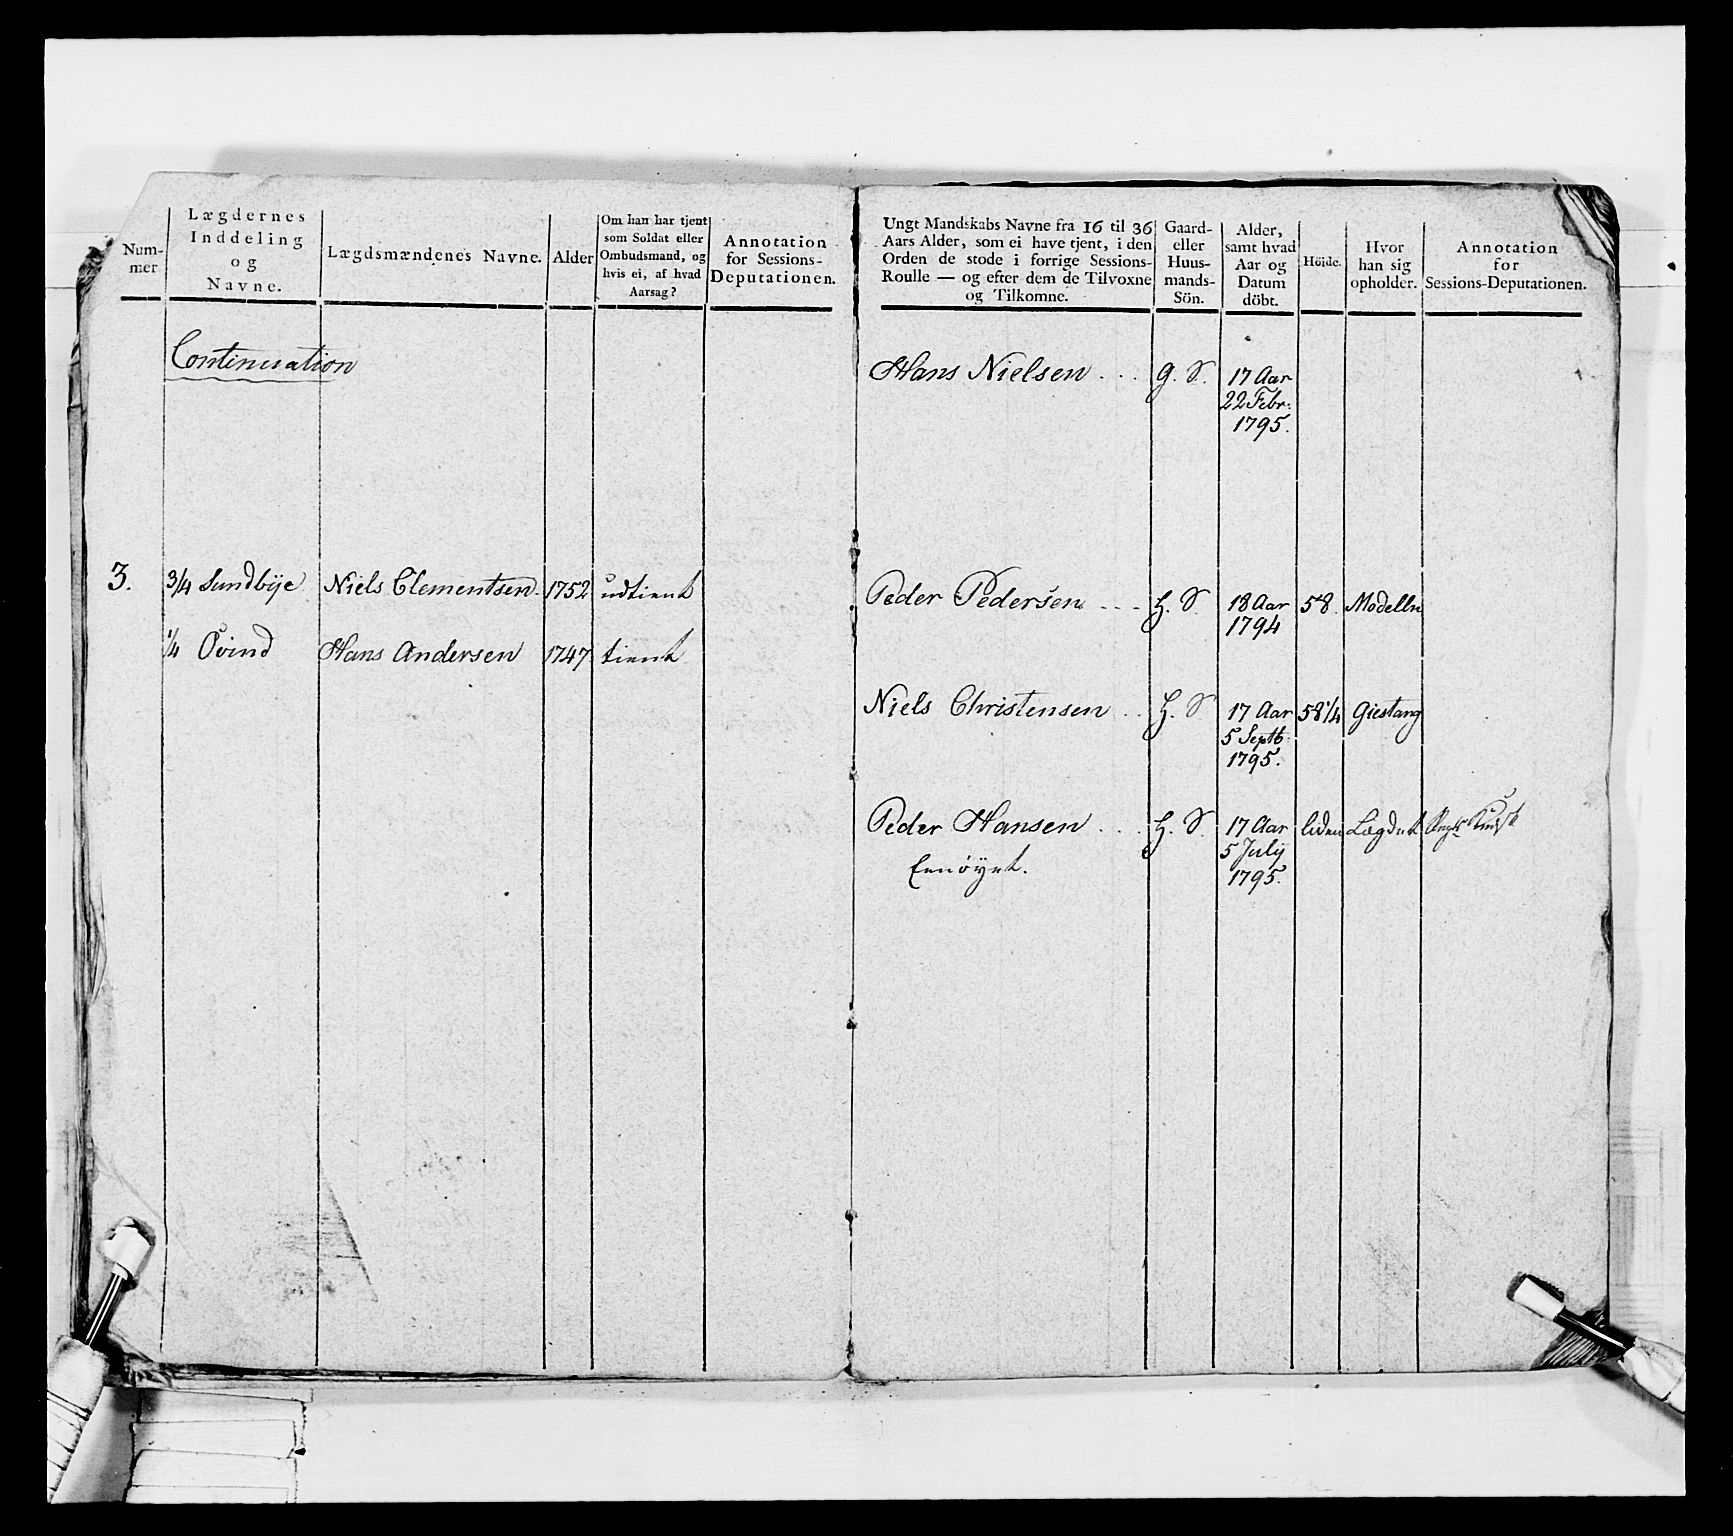 Num-
mer
Lægdernes
Inddeling
og
Navne.
Lægdsmændenes Navne.
Alder
Om han har tjent
som Soldat eller
Ombudsmand, og
hvis ei, af hvad
Aarsag?
Annotation
for Sessions-
Deputationen.
Continuation
3. 3/4 Sundbÿe Niels Clementsen. 1752 udtient
1/4 Övind Hans Andersen 1747 tient
Ungt Mandskabs Navne fra 16 til 36
Aars Alder, som ei have tjent, i den
Orden de stode i forrige Sessions-
Roulle — og efter dem de Tilvoxne
og Tilkomne.
Gaard-
eller
Huus-
mands-
Sön.
Alder,
samt hvad
Aar og
Datum
döbt.
Höide.
Hvor
han sig
opholder.
Annotation
for
Sessions-Deputationen.
Hans Nielsen . . . G. S. 17 Aar
22 Febr:
1795.
Peder Pedersen - - - H. S. 18 Aar 58. Modelln
1794
Niels Christensen . . H. S 17 Aar 58 1/4 Giestang
5 Septb:
1795.
Peder Hansen . . . H. S. 17 Aar liden Lægdet
Eenöyet. 5 July
1795.